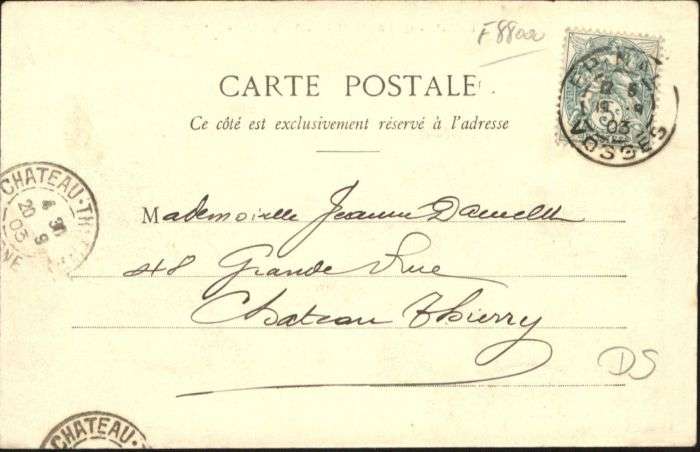 F8802
CARTE POSTALE
Ce côté est exclusivement réservé à l'adresse
EPINAL
03
VOSGES
CHATEAU-TH
4 30
20 9
03
NE
Mademoiselle Jeanne
48 Grande Rue
Chateau Thierry
DS
CHATEAU-T